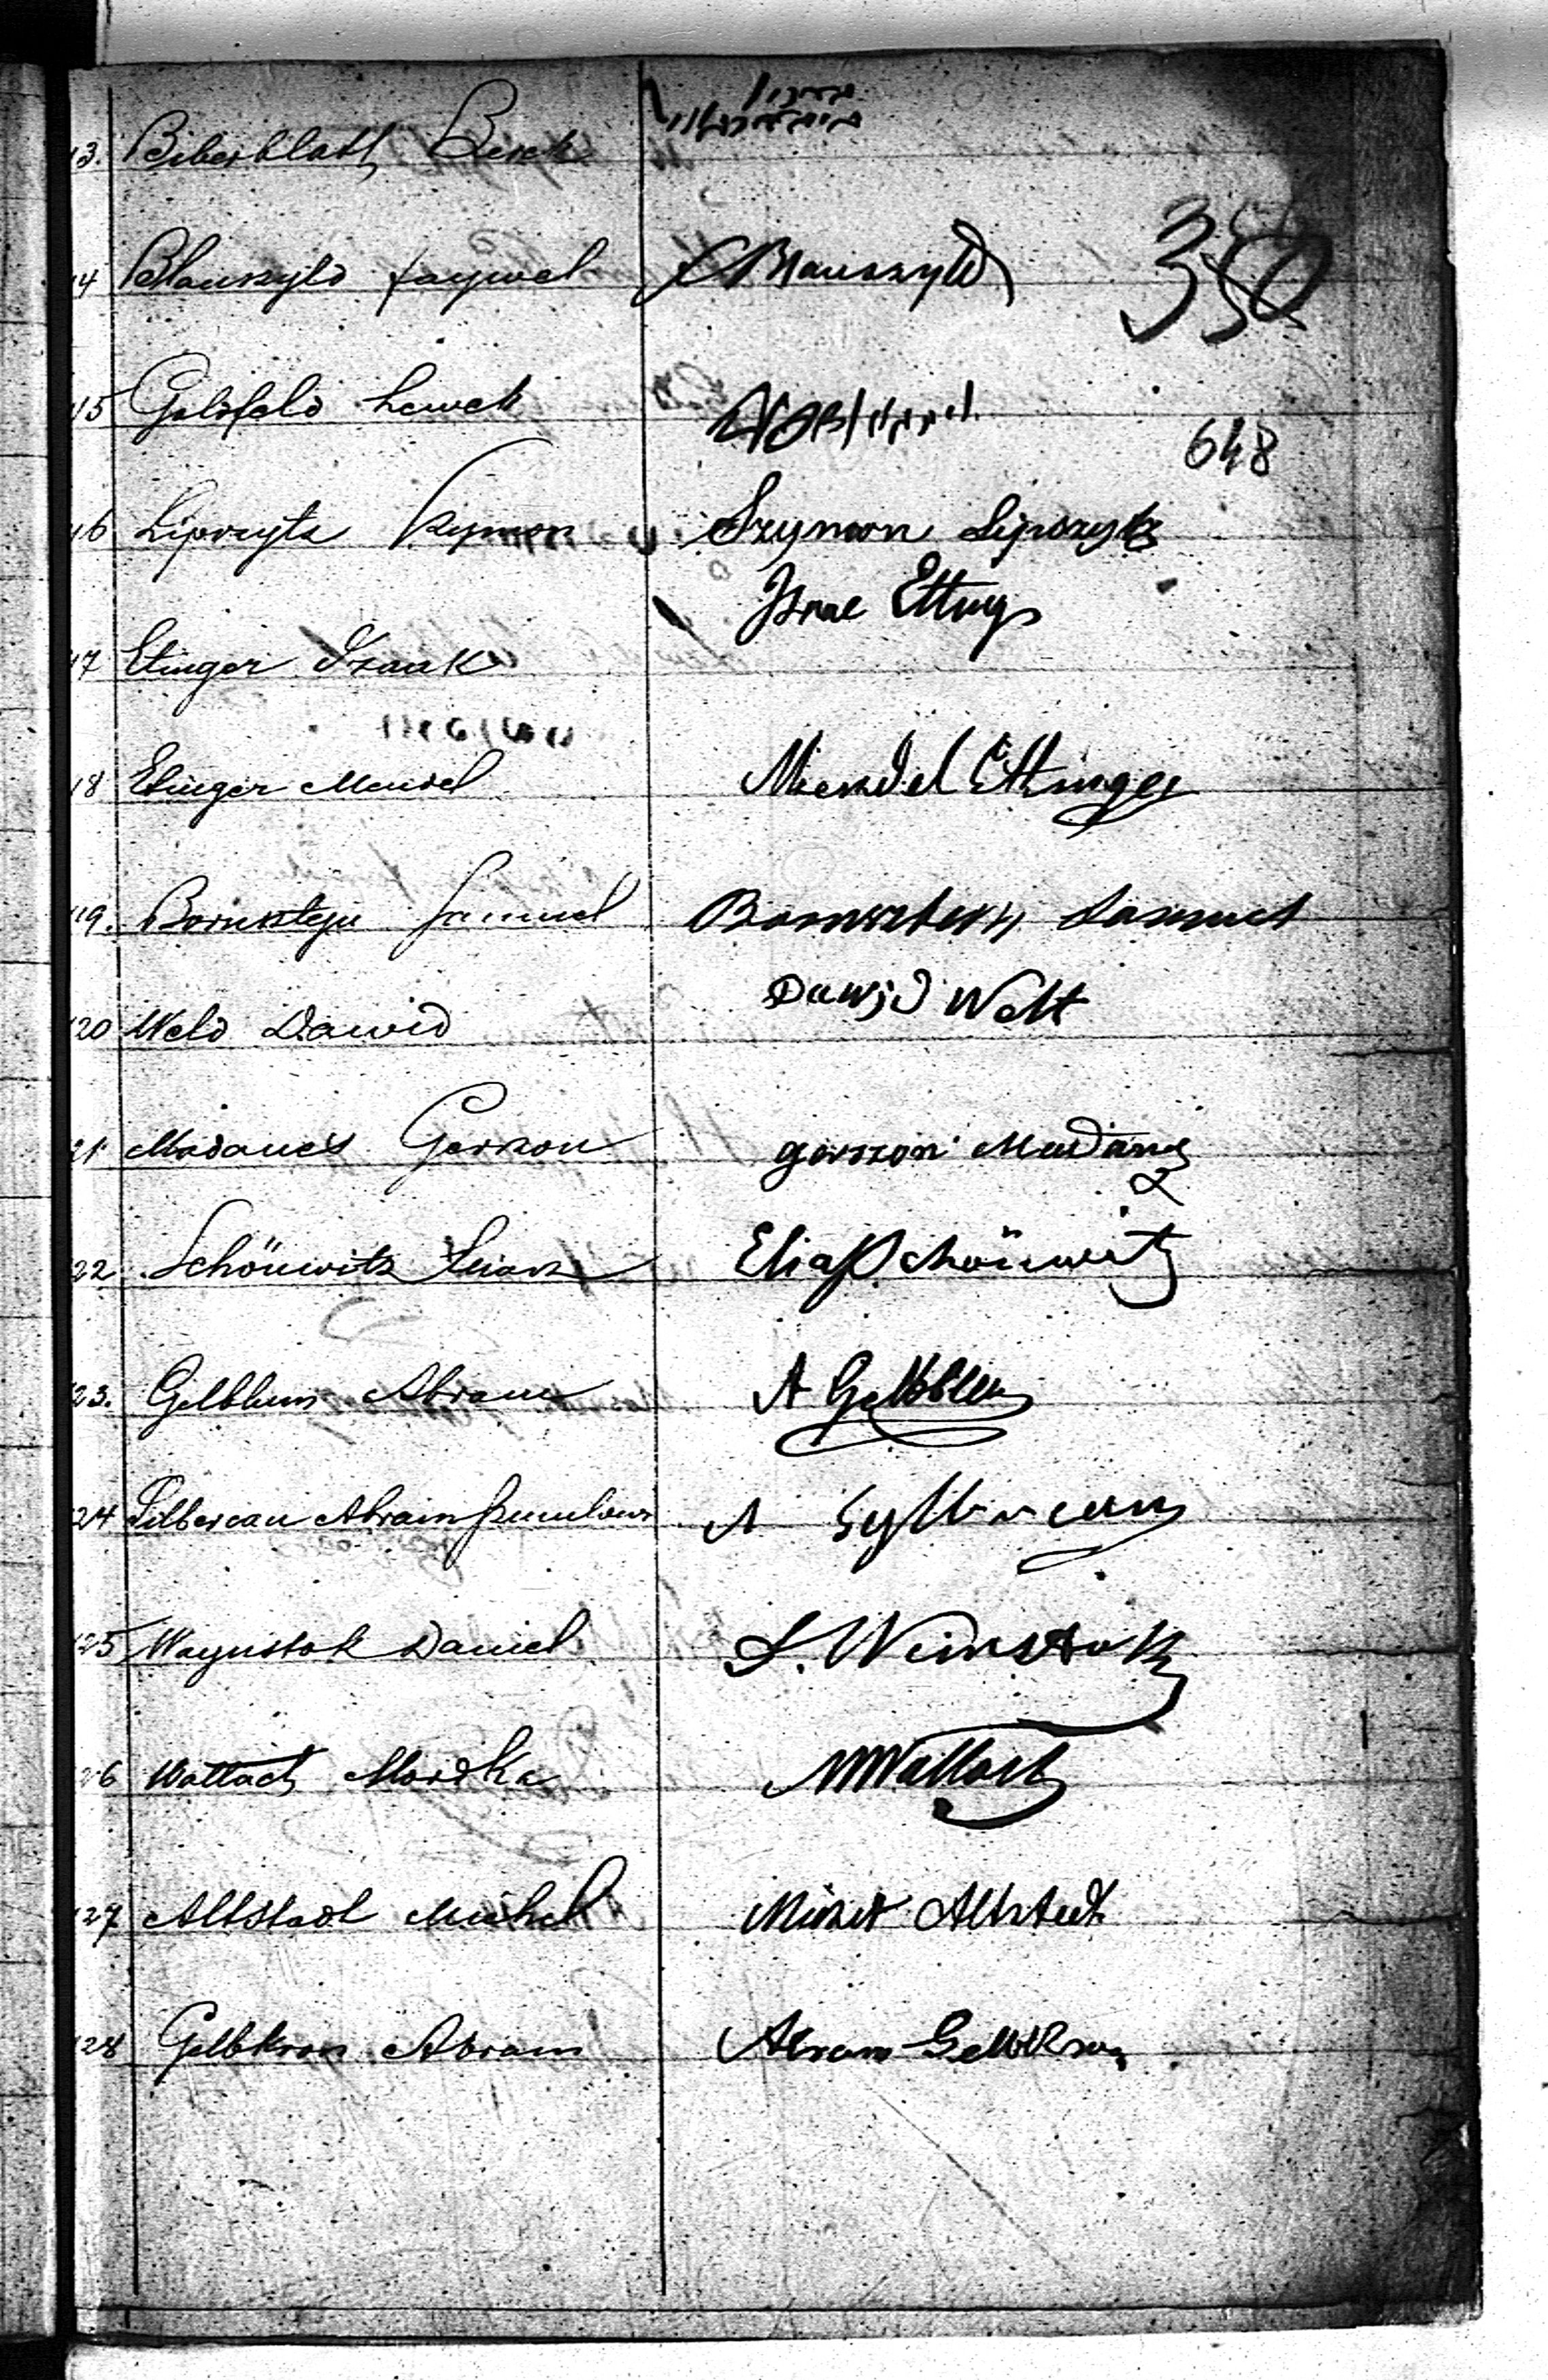 13. Biberblatt Berek
350
14 Blauszyld Faywel Blauszyld
15 Goldfeld Lewek
648
16 Lipszytz Szymon Szymon Lipszytz
17 Etinger Izaak Etting
18 Etinger Mendel Mendel Ettinger
19. Bornsztejn Samuel Bornsztein Samuel
20 Weld Dawid Dawid Welt
21 Madanes Gerszon gerszon Madanes
22 Schönwitz Eliasz Elias Schönwitz
23. Gelblum Abram A Gelblum
24 Silbercan Abram A Sylbercan
25 Waynstok Daniel D. Weinstok
26 Wallach Mordka M Wallach
27 Altstadt Michel Altstadt
28 Gelbkron Abram Abram Gelbkron